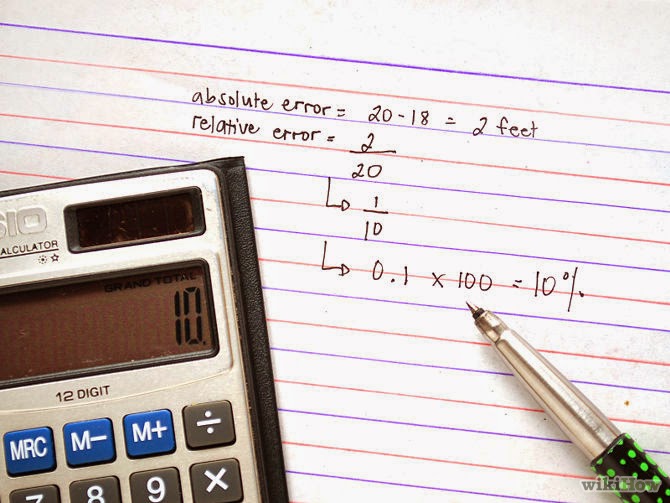 absolute error = 20 - 18 = 2 feet
relative error = 2
20
1
10
0.1 x 100 = 10%
SIO
CALCULATOR
GRAND TOTAL
10.
12 DIGIT
MRC M− M+ ÷
7 8 9 ×
wikiHow